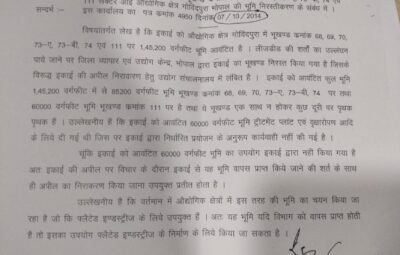 111 सेक्टर आई औद्योगिक क्षेत्र गोविंदपुरा भोपाल की भूमि निरस्तीकरण के संबंध में।
सन्दर्भ – इस कार्यालय का पत्र क्रमांक 4950 दिनांक 07/10/2014
विषयांतर्गत लेख है कि इकाई को औद्योगिक क्षेत्र गोविंदपुरा में भूखण्ड क्रमांक 68, 69, 70,
73-ए, 73-बी, 74 एवं 111 पर 1,45,200 वर्गफीट भूमि आवंटित है। लीजडीड की शर्तों का उल्लंघन
पाये जाने पर जिला व्यापार एवं उद्योग केन्द्र, भोपाल द्वारा इकाई का भूखण्ड निरस्त किया गया है जिसके
विरूद्ध इकाई की अपील निराकरण हेतु उद्योग संचालनालय में लंबित है। इकाई को आवंटित कुल भूमि
1,45,200 वर्गफीट में से 85200 वर्गफीट भूमि भूखण्ड क्रमांक 68, 69, 70, 73-ए, 73-बी, 74 पर तथा
60000 वर्गफीट भूमि भूखण्ड क्रमांक 111 पर है तथा ये भूखण्ड एक साथ न होकर कुछ दूरी पर पृथक
पृथक हैं। उल्लेखनीय है कि इकाई को आवंटित 60000 वर्गफीट भूमि ट्रीटमेंट प्लांट एवं वृक्षारोपण आदि
के लिये दी गई थी जिस पर इकाई द्वारा निर्धारित प्रयोजन के अनुरूप कार्यवाही नहीं की गई है।
चूंकि इकाई को आवंटित 60000 वर्गफीट भूमि का उपयोग इकाई द्वारा नहीं किया गया है
अतः इकाई की अपील पर विचार के दौरान इकाई से यह भूमि वापस प्राप्त किये जाने की शर्त के साथ
ही अपील का निराकरण किया जाना उपयुक्त प्रतीत होता है।
उल्लेखनीय है कि वर्तमान में औद्योगिक क्षेत्रों में इस तरह की भूमि का चयन किया जा
रहा है जो कि फ्लेटेड इण्डस्ट्रीज के लिये उपयुक्त हैं। अतः यह भूमि यदि विभाग को वापस प्राप्त होती
है तो इसका उपयोग फ्लेटेड इण्डस्ट्रीज के निर्माण के लिये किया जा सकता है।